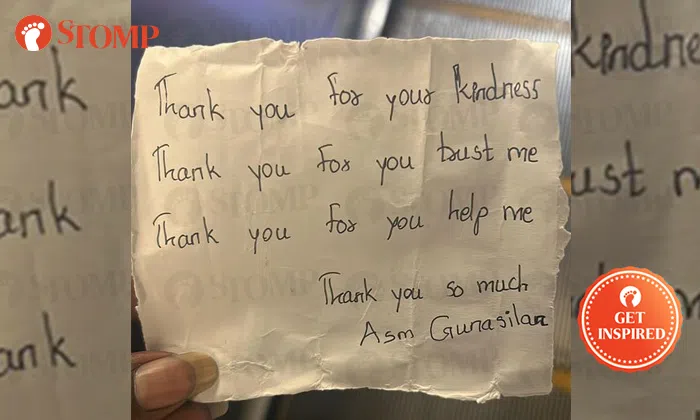 STOMP
Thank you for your kindness
Thank you for you trust me
Thank you for you help me
Thank you so much
Asm Gunasilan
ank
ank
ank
kindne
ust m
GET
INSPIRED